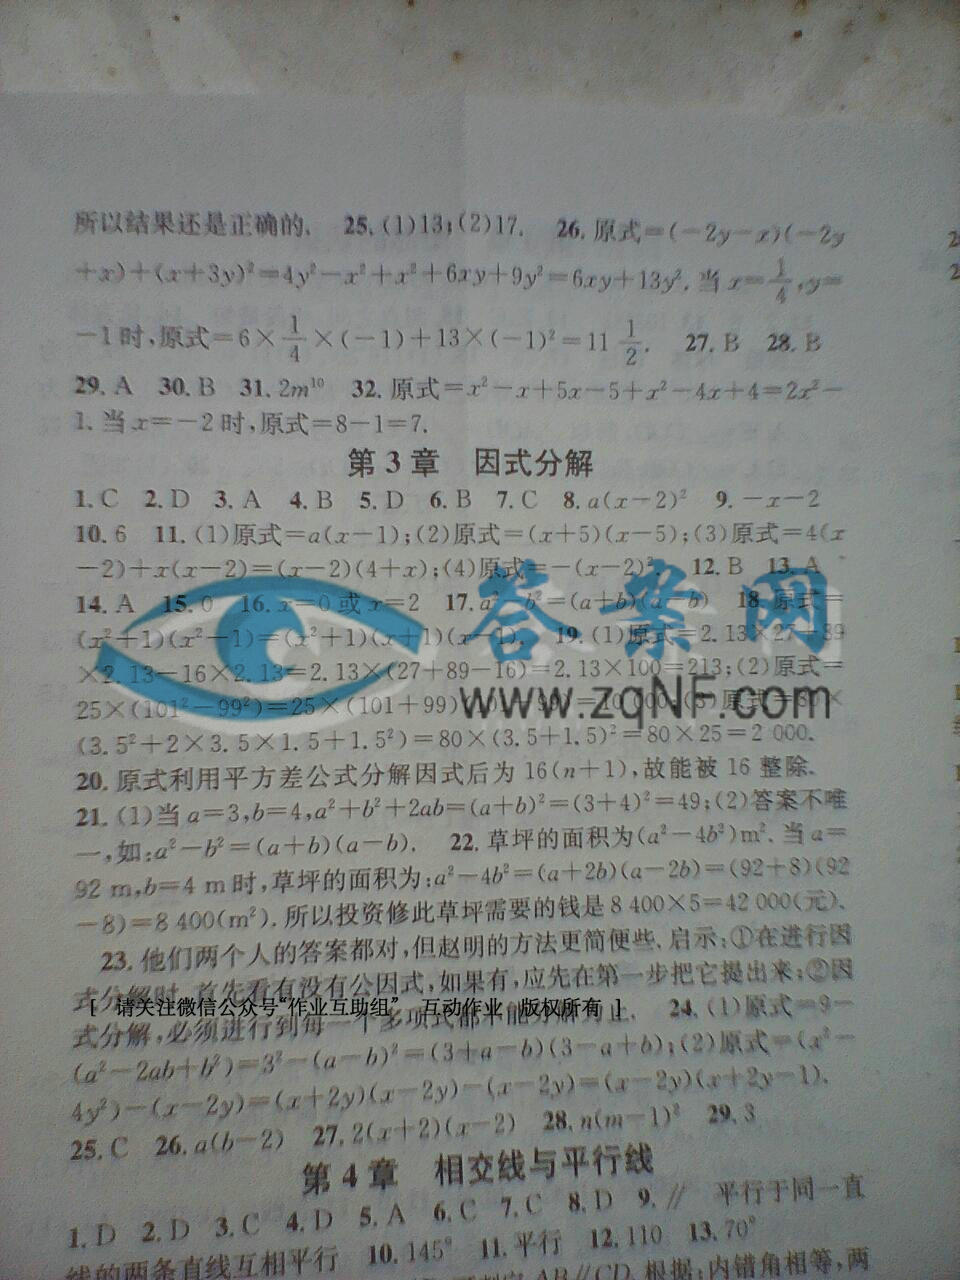 所以结果还是正确的. 25.(1)13;(2)17. 26.原式=(-2y-x)(-2y
+x)+(x+3y)²=4y²-x²+x²+6xy+9y²=6xy+13y².当x=1/4,y=
-1时,原式=6×1/4×(-1)+13×(-1)²=11 1/2. 27.B 28.B
29.A 30.B 31.2m¹⁰ 32.原式=x²-x+5x-5+x²-4x+4=2x²-
1.当x=-2时,原式=8-1=7.
第3章 因式分解
1.C 2.D 3.A 4.B 5.D 6.B 7.C 8.a(x-2)² 9.-x-2
10.6 11.(1)原式=a(x-1);(2)原式=(x+5)(x-5);(3)原式=4(x
-2)+x(x-2)=(x-2)(4+x);(4)原式=-(x-2)². 12.B 13.A
14.A 15.0 16.x=0或x=2 17.a²-b²=(a+b)(a-b) 18.原式=
(x²+1)(x²-1)=(x²+1)(x+1)(x-1). 19.(1)原式=2.13×27+89
×2.13-16×2.13=2.13×(27+89-16)=2.13×100=213;(2)原式=
25×(101²-99²)=25×(101+99)(101-99)=10 000;(3)原式=80×
(3.5²+2×3.5×1.5+1.5²)=80×(3.5+1.5)²=80×25=2 000.
20.原式利用平方差公式分解因式后为16(n+1),故能被16整除.
21.(1)当a=3,b=4,a²+b²+2ab=(a+b)²=(3+4)²=49;(2)答案不唯
一,如:a²-b²=(a+b)(a-b). 22.草坪的面积为(a²-4b²)m².当a=
92 m,b=4 m时,草坪的面积为:a²-4b²=(a+2b)(a-2b)=(92+8)(92
-8)=8 400(m²).所以投资修此草坪需要的钱是8 400×5=42 000(元).
23.他们两个人的答案都对,但赵明的方法更简便些.启示:①在进行因
式分解时,首先看有没有公因式,如果有,应先在第一步把它提出来;②因
式分解,必须进行到每一个多项式都不能分解为止. 24.(1)原式=9-
(a²-2ab+b²)=3²-(a-b)²=(3+a-b)(3-a+b);(2)原式=(x²-
4y²)-(x-2y)=(x+2y)(x-2y)-(x-2y)=(x-2y)(x+2y-1).
25.C 26.a(b-2) 27.2(x+2)(x-2) 28.n(m-1)² 29.3
第4章 相交线与平行线
1.D 2.D 3.C 4.D 5.A 6.C 7.C 8.D 9.∥ 平行于同一直
线的两条直线互相平行 10.145° 11.平行 12.110 13.70°
AB∥CD.根据:内错角相等,两
答案网
www.zqNF.com
[ 请关注微信公众号“作业互助组” 互动作业 版权所有 ]